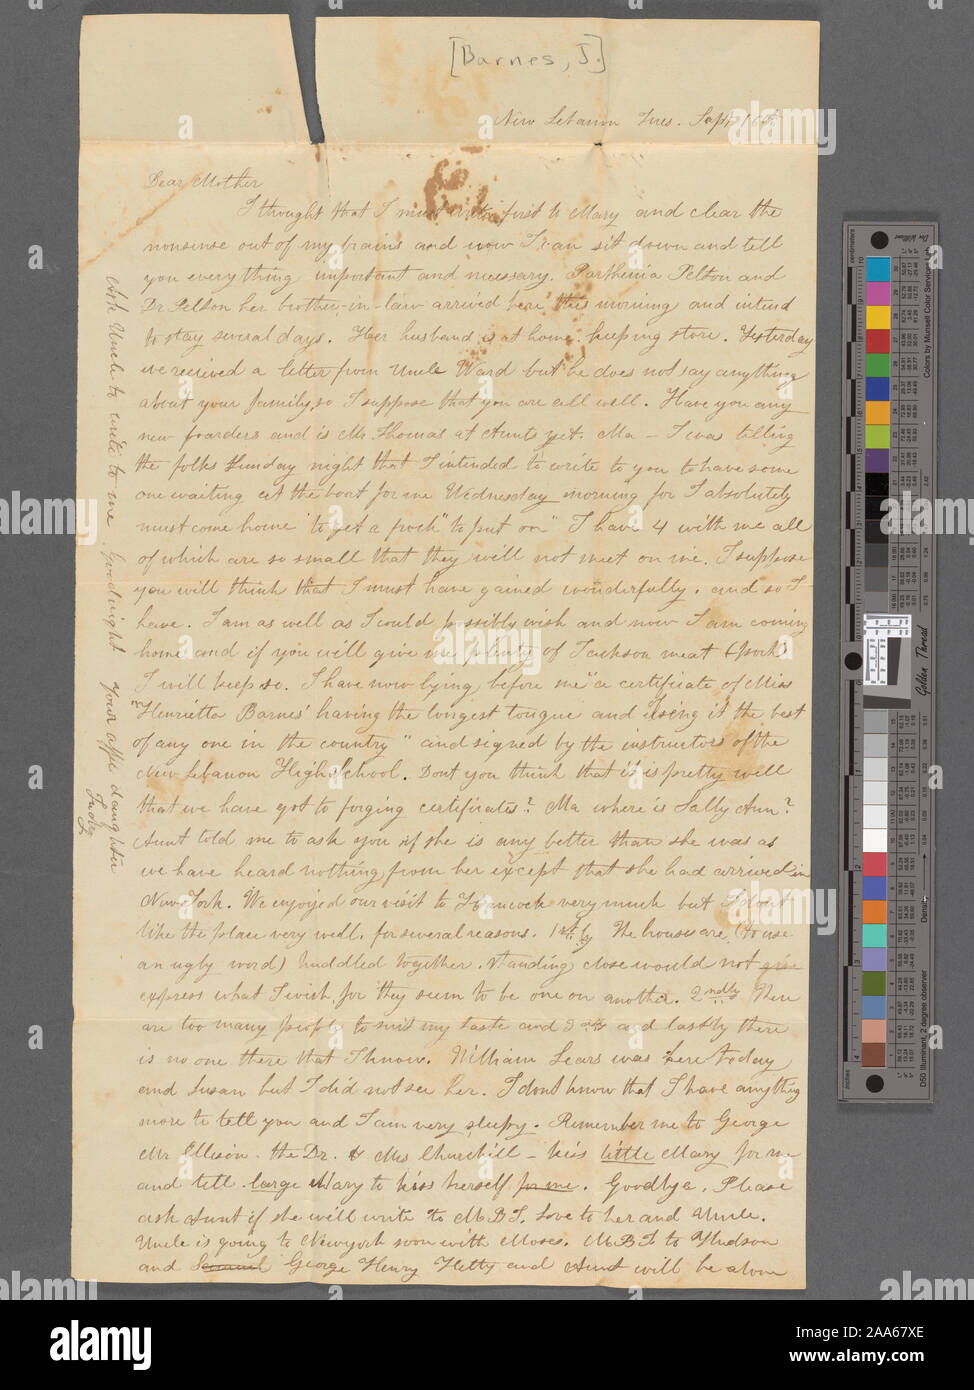 [Barnes, J.]
New Lebanon Tues. Sept 16th
Dear Mother
I thought that I must write first to Mary and clear the
nonsense out of my brains and now I can sit down and tell
you everything important and necessary. Parthenia Pelton and
Dr Pelton her brother-in-law arrived here this morning and intend
to stay several days. Her husband is at home keeping store. Yesterday
we received a letter from Uncle Ward but he does not say anything
about your family, so I suppose that you are all well. Have you any
new boarders and is Mr Thomas at Aunts yet. Ma - I was telling
the folks Sunday night that I intended to write to you to have some
one waiting at the boat for me Wednesday morning for I absolutely
must come home "to get a frock" to put on" I have 4 with me all
of which are so small that they will not meet on me. I suppose
you will think that I must have gained wonderfully. and so I
have. I am as well as I could possibly wish and now I am coming
home and if you will give me plenty of Jackson meat (pork)
I will keep so. I have now lying before me "a certificate of Miss
"Henrietta Barnes' having the longest tongue and using it the best
of any one in the country" and signed by the instructors of the
New Lebanon High School. Dont you think that it is pretty well
that we have got to forging certificates? Ma where is Sally Ann?
Aunt told me to ask you if she is any better than she was as
we have heard nothing from her except that she had arrived in
New York. We enjoyed our visit to Hancock very much but I dont
like the place very well. for several reasons. 1stly The houses are (to use
an ugly word) huddled together. standing close would not give
express what I wish, for they seem to be one on another. 2ndly There
are too many people to suit my taste and and lastly there
is no one there that I know. William Sears was here today
and Susan but I did not see her. I dont know that I have anything
more to tell you and I am very sleepy. Remember me to George
Mr Ellison - the Dr. & Mrs Churchill - kiss little Mary for me
and tell large Mary to kiss herself for me. Goodbye. Please
ask Aunt if she will write to M B T. Love to her and Uncle.
Uncle is going to Newyork soon with Moses. M B T. to Hudson
and Samuel George Henry Hetty and Aunt will be alone
Ask Uncle to write to me. Goodnight Your affec daughter
Juley
alamy
a
Image ID: 2AA67XE
www.alamy.com
centimeters
inches
Colors by Munsell Color Services Lab
Golden Thread
Density
D50 Illuminant, 2 degree observer